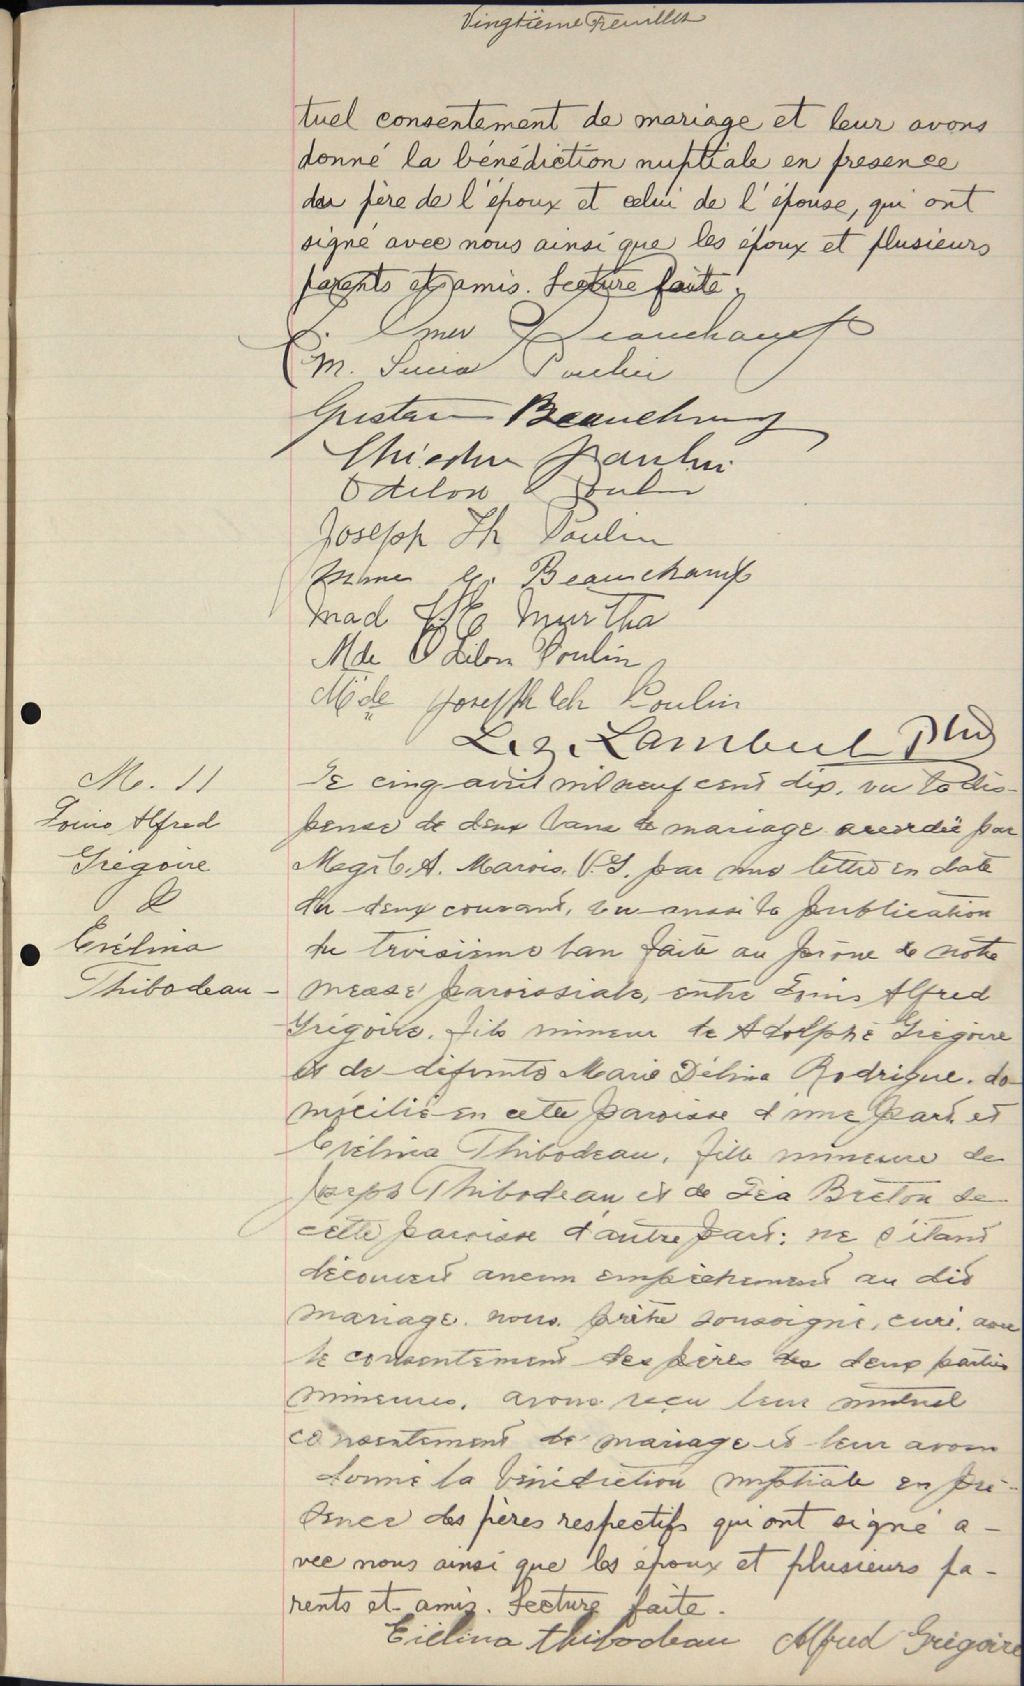 Vingtième Feuillet
tuel consentement de mariage et leur avons
donné la bénédiction nuptiale en presence
du père de l'époux et celui de l'épouse, qui ont
signé avec nous ainsi que les époux et plusieurs
parents et amis. Lecture faite.
Omer Beauchamp
M. Lucia Poulin
Gustave Beauchamp
Poulin
Odilon Poulin
Joseph Th Poulin
G. Beauchamp
Mad J. E Murtha
Mde Odilon Poulin
Mde Joseph Th Poulin
Lambert Ptre
M. 11
Louis Alfred
Grégoire
&
Evélina
Thibodeau
Le cinq avril mil neuf cent dix, vu la dis-
pense de deux bans de mariage accordée par
Megr C. A. Marois, V. G. par une lettre en date
du deux courant, vu aussi la publication
du troisième ban faite au prône de notre
messe paroissiale, entre Louis Alfred
Grégoire, fils mineur de Adolphe Grégoire
et de défunte Marie Délina Rodrigue, do-
micilié en cette paroisse d'une part et
Evélina Thibodeau, fille mineure de
Joseph Thibodeau et de Léa Breton de
cette paroisse d'autre part; ne s'étant
découvert aucun empêchement au dit
mariage, nous, prêtre soussigné, curé, avec
le consentement des pères des deux parties
mineures, avons reçu leur mutuel
consentement de mariage et leur avons
donné la bénédiction nuptiale en pré-
sence des pères respectifs qui ont signé a-
vec nous ainsi que les époux et plusieurs pa-
rents et amis. Lecture faite.
Evélina Thibodeau Alfred Grégoire